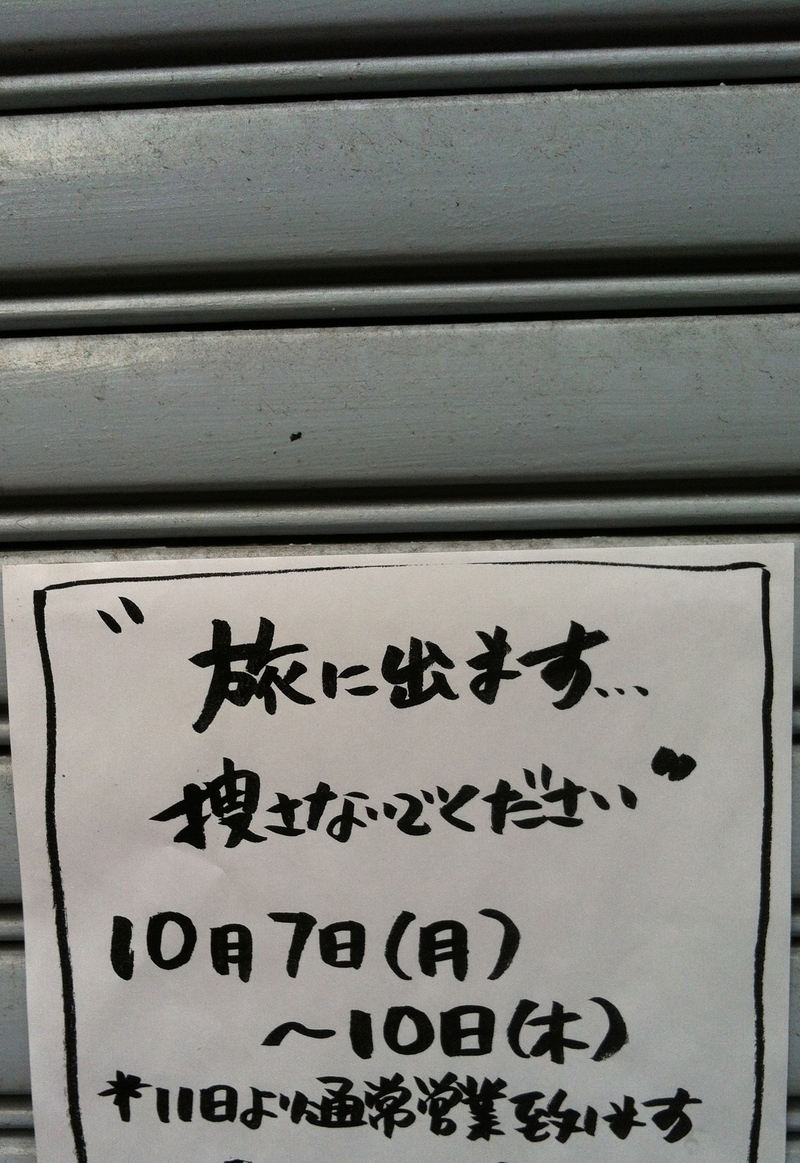 "旅に出ます...
捜さないでください"
10月7日(月)
〜10日(木)
*11日より通常営業致します